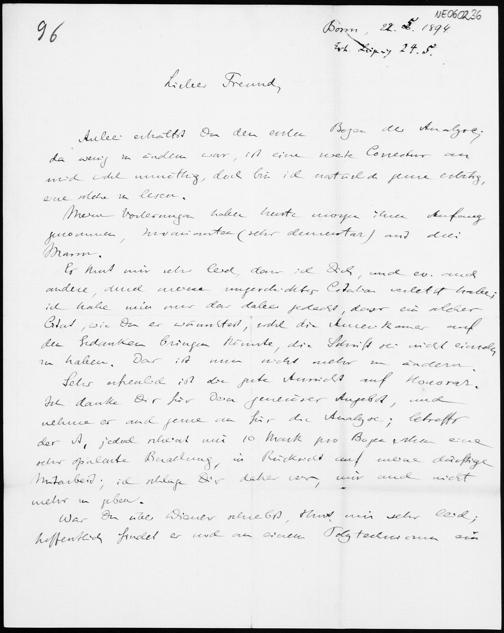 NE060236
96
Bonn, 22. 5. 1894
Leipzig 24. 5.
Lieber Freund,
Anbei erhältst Du den ersten Bogen der Analyse;
da wenig zu ändern war, ist eine weitere Correctur an
mich wohl unnöthig, doch bin ich natürlich gerne erbötig,
eine solche zu lesen.
Meine Vorlesungen haben heute morgen ihren Anfang
genommen, Invarianten (sehr elementar) und drei
Mann.
Es thut mir sehr leid, dass ich Dich, und ev. auch
andere, durch meine ungeschickten verletzt habe;
ich habe mir nur dabei gedacht, dass ein solcher
Citat, wie Du er wünschtest, wohl die Amerikaner auf
den Gedanken bringen könnte, die Schrift sei nicht
zu haben. Das ist nun nicht mehr zu ändern.
Sehr erfreulich ist die gute Aussicht auf Honorar.
Ich danke Dir für Dein generöses Angebot, und
nehme es auch gerne an für die Analyse; betreffs
der A, jedoch scheint mir 10 Mark pro Bogen schon eine
sehr opulente Bezahlung, in Rücksicht auf meine dürftige
Mitarbeit; ich schlage Dir daher vor, mir auch nicht
mehr zu geben.
Was Du über Wiener schreibst, thut mir sehr leid;
hoffentlich findet er noch an einem Polytechnicum ein